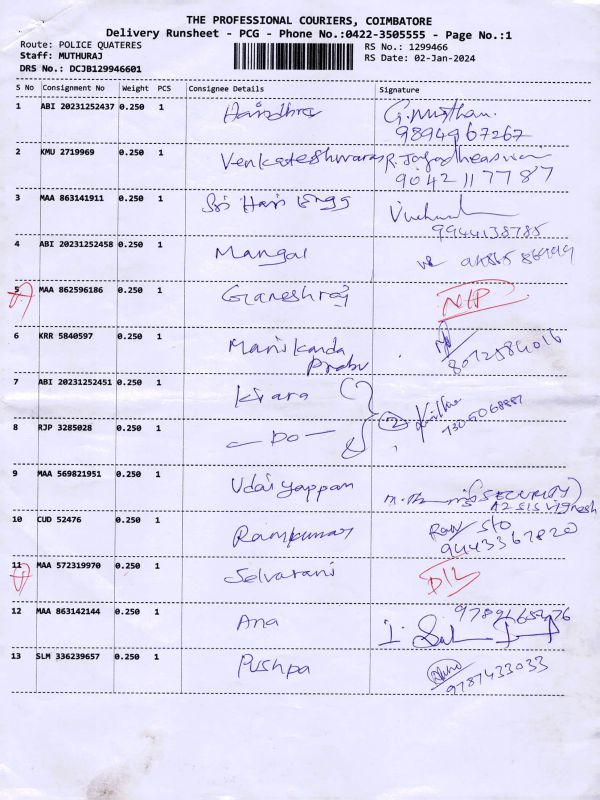 THE PROFESSIONAL COURIERS, COIMBATORE
Delivery Runsheet - PCG - Phone No.:0422-3505555 - Page No.:1
Route: POLICE QUATERES RS No.: 1299466
Staff: MUTHURAJ RS Date: 02-Jan-2024
DRS No.: DCJB129946601
S No Consignment No Weight PCS Consignee Details Signature
1 ABI 20231252437 0.250 1 G.Muthu.
9894967267
2 KMU 2719969 0.250 1 Venkateshwaras
9042117787
3 MAA 863141911 0.250 1 Sri Hari Engg
9944138785
4 ABI 20231252458 0.250 1 Mangal
5 MAA 862596186 0.250 1 Ganeshraj N/P
6 KRR 5840597 0.250 1 Manikanda
Prabu 8072584016
7 ABI 20231252451 0.250 1 Kiara
2
8 RJP 3285028 0.250 1 — Do —
9 MAA 569821951 0.250 1 Udaiyappan (SECURITY)
A2 SIS Vignesh
10 CUD 52476 0.250 1 Ramkumar S/o
9443367820
11 MAA 572319970 0.250 1 Selvarani D/L
12 MAA 863142144 0.250 1 Ana
13 SLM 336239657 0.250 1 Pushpa
9787433033